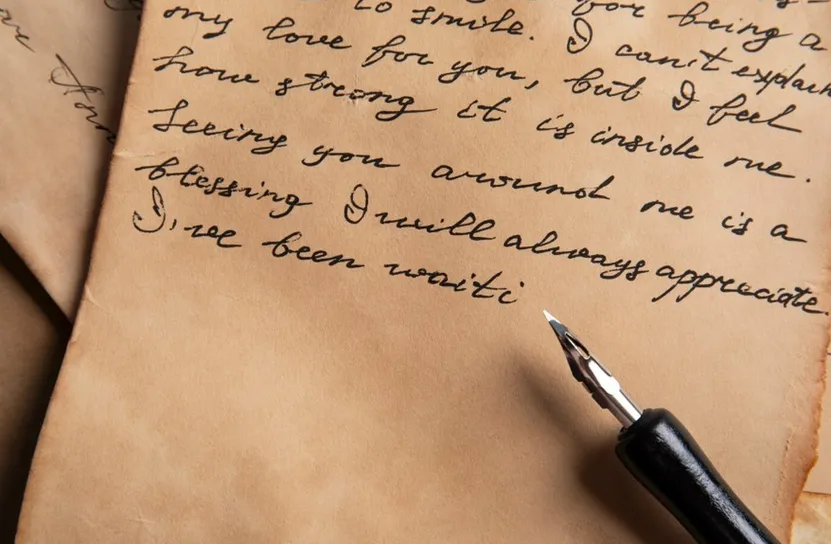 to smile. for being a
my love for you, I can't explain
how strong it is inside me. but I feel
Seeing you around me is a
blessing I will always appreciate.
I've been waiti